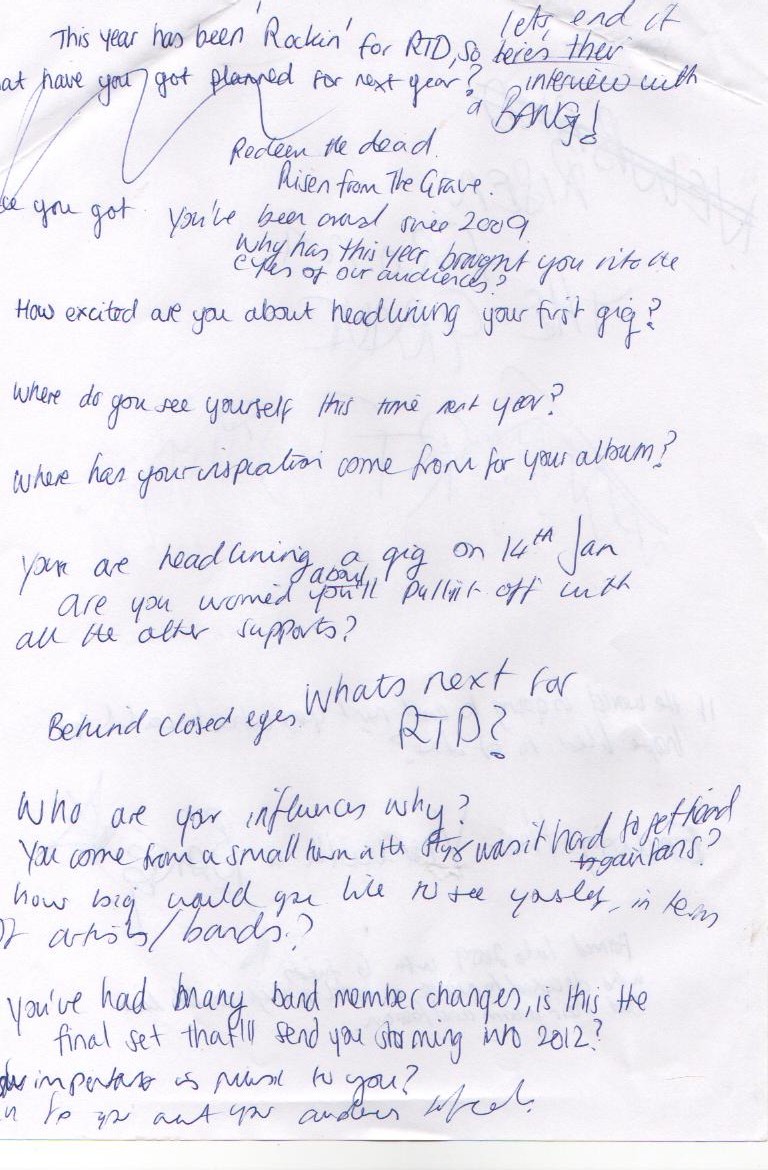 This year has been 'Rockin' for RTD, so here's their
let's end it
interview with
a BANG!
at have you got planned for next year?
Redeem the dead.
Risen from The Grave.
you got
You've been around since 2009
Why has this year brought you into the
eyes of our audiences?
How excited are you about headlining your first gig?
Where do you see yourself this time next year?
Where has your inspiration come from for your album?
You are headlining a gig on 14th Jan
are you worried about you'll pull it off with
all the other supports?
Behind closed eyes.
Whats next for
RTD?
Who are your influences why?
You come from a small town was it hard to get hard
to gain fans?
how big would you like to see yourself, in terms
of artists/bands?
You've had many band member changes, is this the
final set that'll send you storming into 2012?
important is music to you?